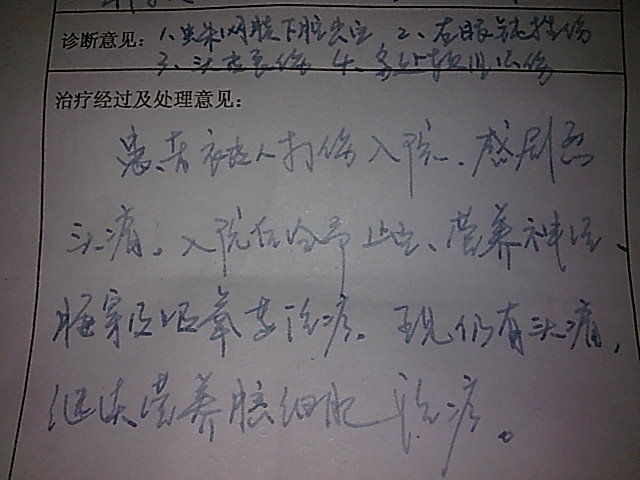 诊断意见：1、蛛网膜下腔出血 2、右眼钝挫伤
3、头皮 伤 4、多处软组织伤
治疗经过及处理意见：
患者被他人打伤入院、感剧烈
头痛。入院后给予止血、营养神经、
腰穿及吸氧等治疗。现仍有头痛，
继续营养脑细胞治疗。